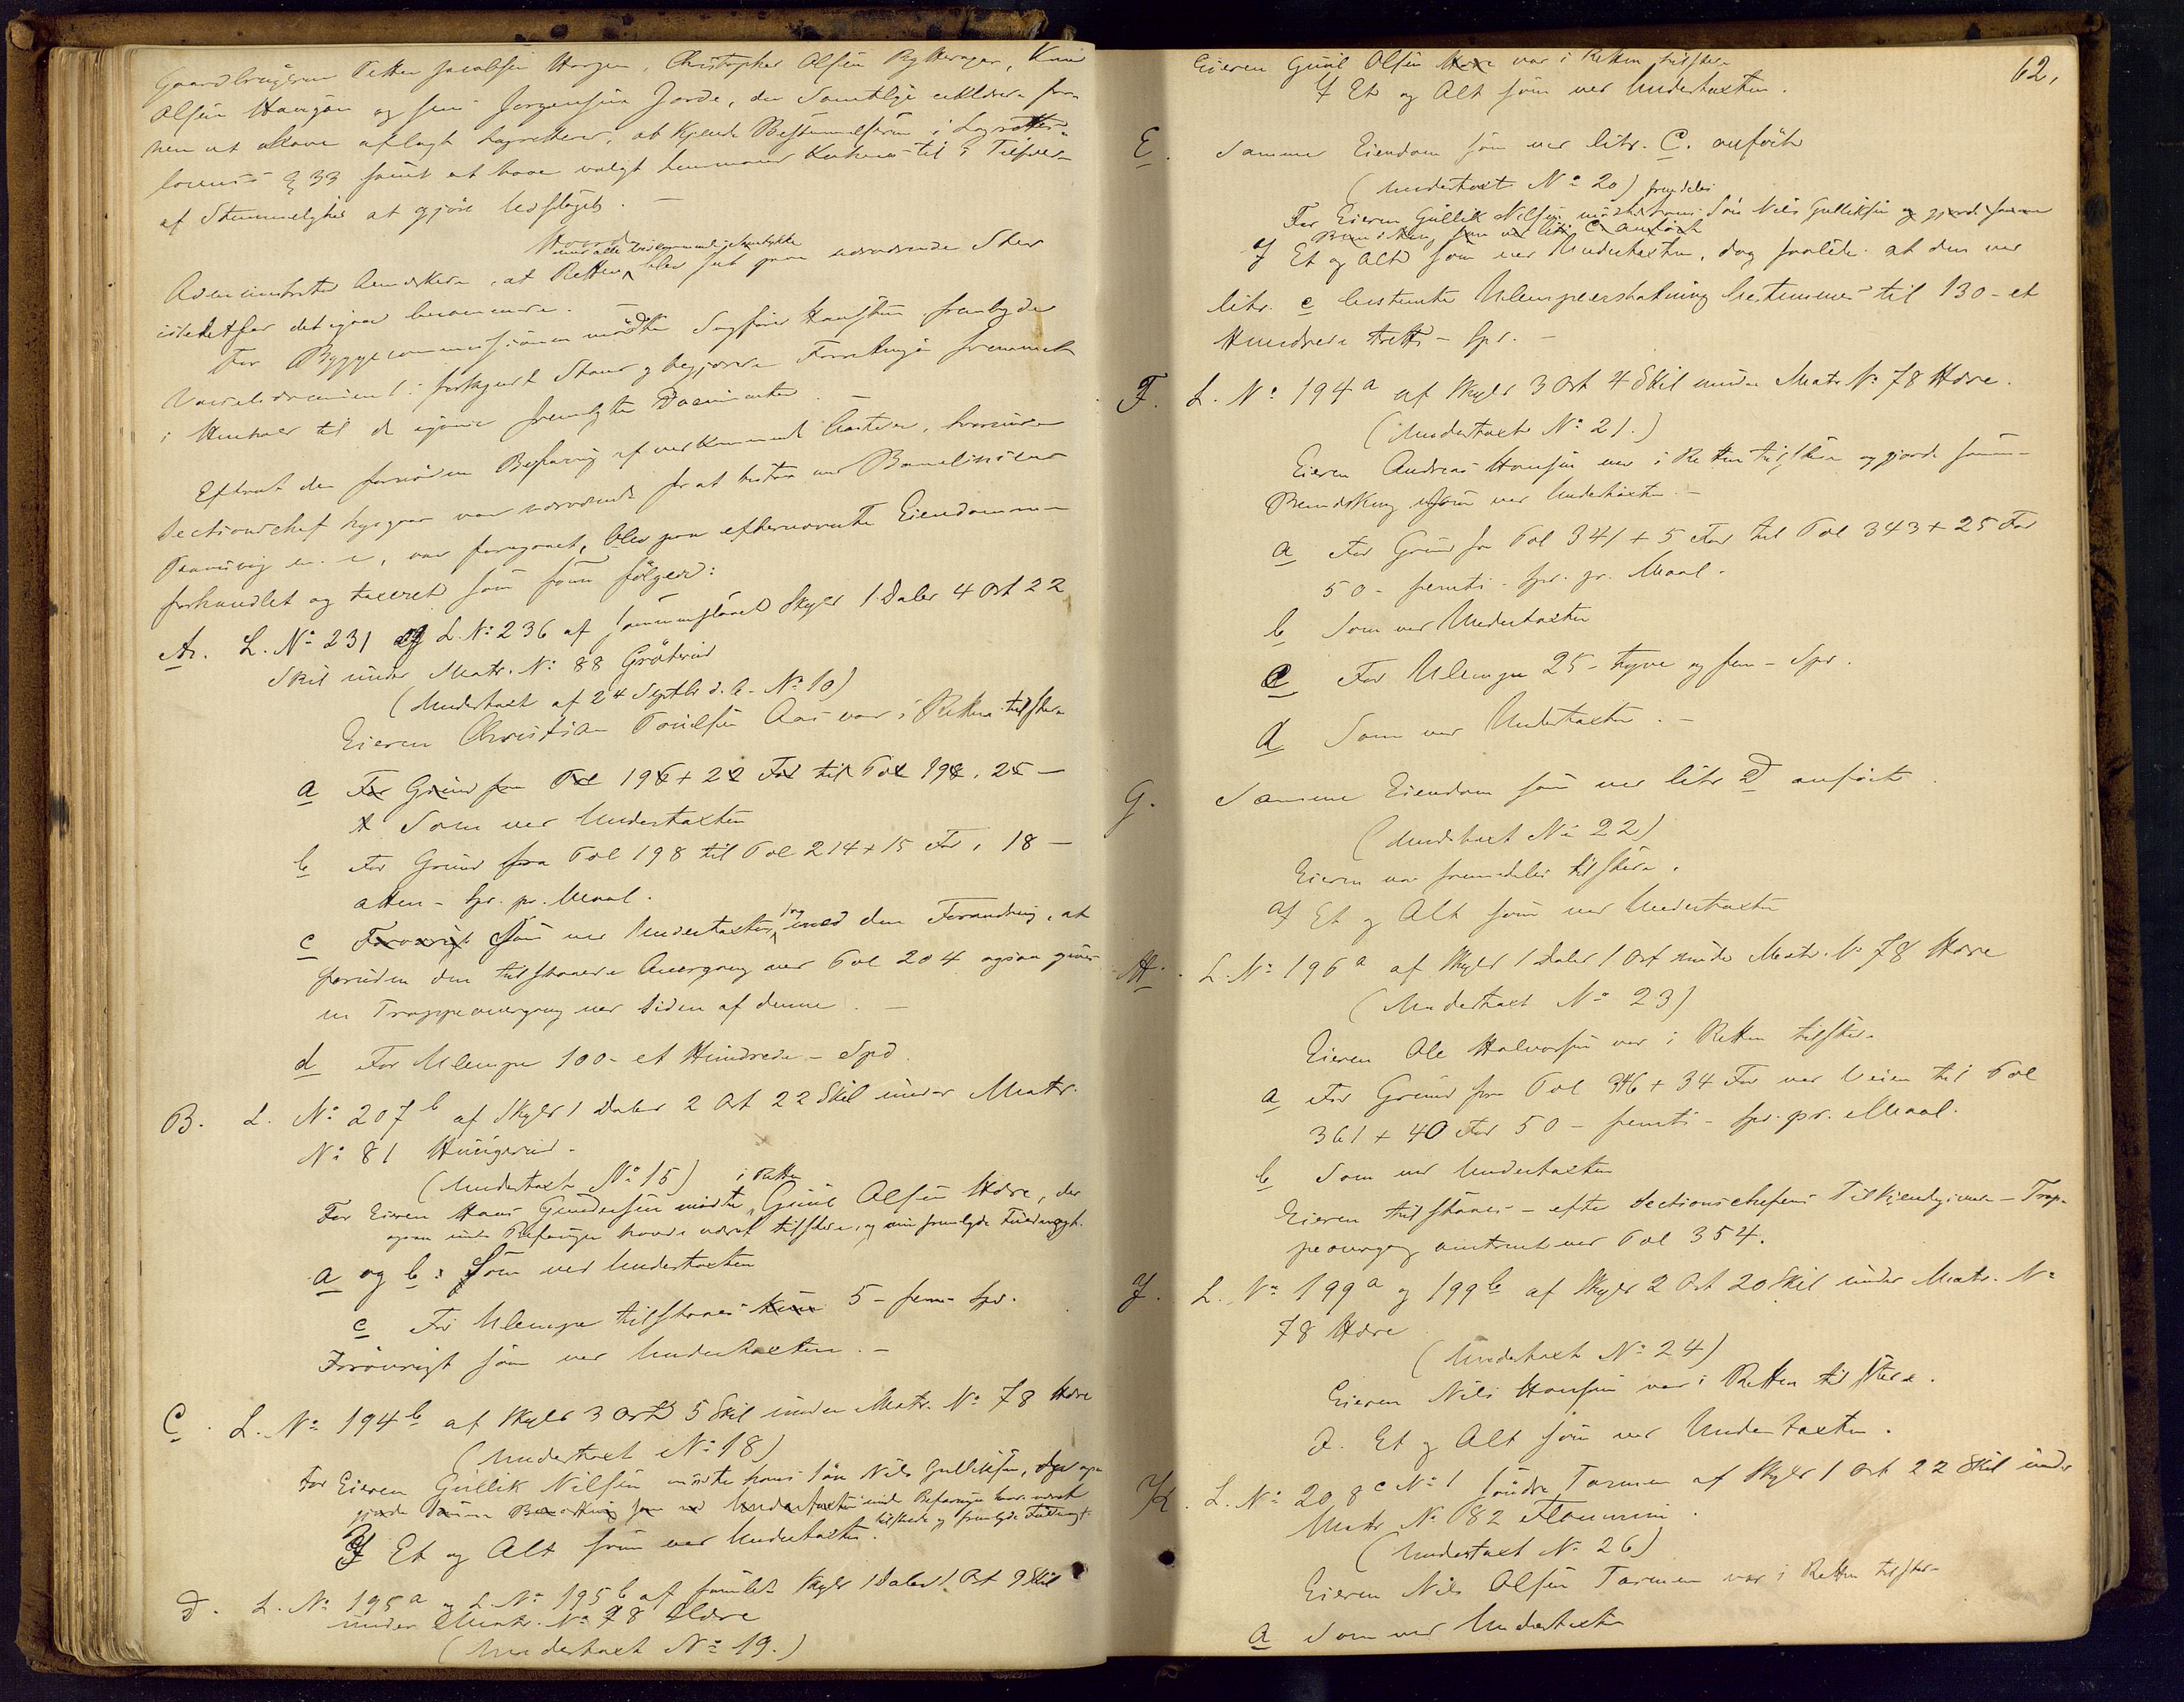 Gaardbrugerne Petter Jacobsen Horgen, Christopher Olsen Rytterager, Knud
Olsen Haugan og Jens Jørgensen Jorde, der Samtlige erklærer for
hen at have aflagt Lagretteed, at kjende Bestemmelserne i Lagrettes-
lovens § 33 samt at have valgt hinanden til i Tilfælde
af Stemmelighed at gjøre Udslaget. —
Administrator bemærkede, at Retten blev sat paa nærværende Sted
istedetfor det igaar berammede.
For Byggecommissionen mødte Sagfører Hansteen fremlyde
i Henhold til de igaar fremlagte Documenter
Efterat den fornødne Befaring af vedkommende Havde, hvorunder
Sectionschef Lysgaar var nærværende for at udvise Banelinien
Planering m. v., var foregaaet, blev paa efternævnte Eiendomme
forhandlet og taxeret som følger:
A. L. No 231 og L. No 236 af sammenslaaet Skyld 1 Daler 4 Ort 22
Skil under Matr. No 88 Grøterud
(Undertaxt af 24 Septbr d. A. No 10)
Eieren Christian Poulsen Aas var i Retten tilstede
a For Grund fra Pæl 196 + 22 Fod til Pæl 198, 25 —
Som ved Undertaxten
b For Grund fra Pæl 198 til Pæl 214 + 15 Fod, 18 —
atten - Spd. pr. Maal.
c Forøvrigt Som ved Undertaxten, dog med den Forandring, at
foruden den tilstaaede Overgang ved Pæl 204 ogsaa gives
en Trappeovergang ved Siden af denne. —
d For Ulempe 100 - et Hundrede - Spd.
B. L. No 207 b af Skyld 1 Daler 2 Ort 22 Skil under Matr.
No 81 Hungerud.
(Undertaxt No 15) i Retten
For Eieren Hans Gundersen mødte Guul Olsen Hære, der
ogsaa under Befaringen havde været tilstede, og nu fremlyde Fuldmagt.
a og b: Som ved Undertaxten
c For Ulempe tilstaaes kun 5 - fem - Spd.
Forøvrigt som ved Undertaxten. —
C. L. No 194 b af Skyld 3 Ort 5 Skil under Matr. No 78 Hære
(Undertaxt No 18)
For Eieren Gullik Nilsen mødte hans Søn Nils Gulliksen, der ogsaa
gjorde samme Bemærkning som ved Undertaxten under Befaringen havde været
tilstede og fremlyde Fuldmagt.
Et og Alt som ved Undertaxten.
D. L. No 195 a og L. No 195 b af samlet Skyld 1 Daler 1 Ort 9 Skil
under Matr. No 78 Hære
(Undertaxt No 19.)
62,
Eieren Guul Olsen Hære var i Retten tilstede
Et og Alt som ved Undertaxten.
E. Samme Eiendom som ved litr. C. anført
(Undertaxt No 20) fremdeles
For Eieren Gullik Nilsen mødte hans Søn Nils Gulliksen og gjorde samme
Bemærkning som ved litr. C anført
Et og Alt som ved Undertaxten, dog saaledes at den ved
litr. c bestemte Ulempeerstatning bestemmes til 130 - et
Hundrede tretti - Spd. —
F. L. No 194 a af Skyld 3 Ort 4 Skil under Matr No 78 Hære.
(Undertaxt No 21.)
Eieren Andreas Hansen var i Retten tilstede og gjorde samme
Bemærkning som ved Undertaxten. —
a For Grund fra Pæl 341 + 5 Fod til Pæl 343 + 25 Fod
50 - femti - Spd. pr. Maal.
b Som ved Undertaxten
c For Ulempe 25 - tyve og fem - Spd.
d Som ved Undertaxten. —
G. Samme Eiendom som ved litr D anført.
(Undertaxt No 22)
Eieren var fremdeles tilstede.
Et og Alt som ved Undertaxten
H. L. No 196 a af Skyld 1 Daler 1 Ort under Matr. No 78 Hære
(Undertaxt No 23)
Eieren Ole Halvorsen var i Retten tilstede.
a For Grund fra Pæl 346 + 34 Fod ved Veien til Pæl
361 + 40 Fod 50 - femti - Spd. pr. Maal.
b Som ved Undertaxten
Eieren tilstaaes - efter Sectionschefens Tilkjendegivende - Trap-
peovergang omtrent ved Pæl 354.
J. L. No 199 a og 199 b af Skyld 2 Ort 20 Skil under Matr. No
78 Hære
(Undertaxt No 24)
Eieren Nils Hansen var i Retten tilstede.
Et og Alt som ved Undertaxten.
K. L. No 208 c No 1 Søndre Tormen af Skyld 1 Ort 22 Skil under
Matr No 82
(Undertaxt No 26)
Eieren Nils Olsen Tormen var i Retten tilstede
a Som ved Undertaxten